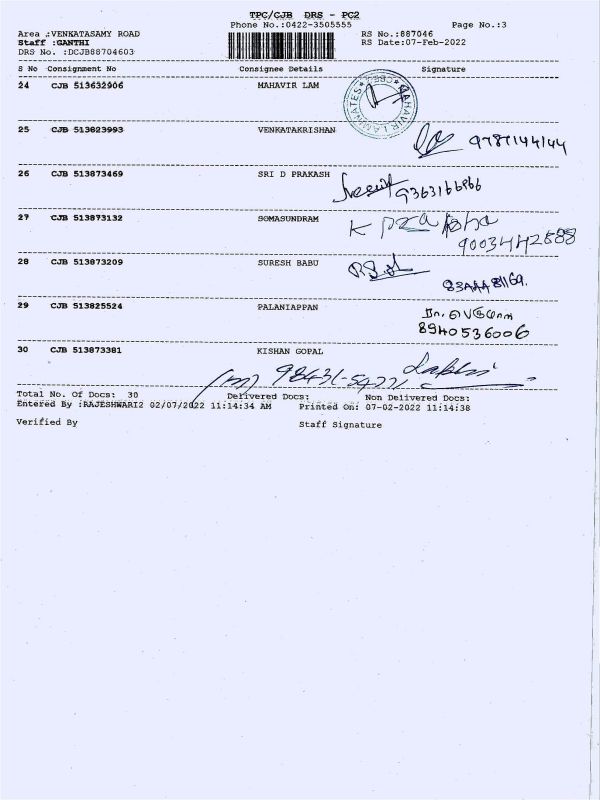 TPC/CJB DRS - PC2
Phone No.:0422-3505555 Page No.:3
Area :VENKATASAMY ROAD RS No.:887046
Staff :GANTHI RS Date:07-Feb-2022
DRS No. :DCJB88704603
S No Consignment No Consignee Details Signature
24 CJB 513632906 MAHAVIR LAM
MAHAVIR LAMINATES
25 CJB 513823993 VENKATAKRISHAN
9787144144
26 CJB 513873469 SRI D PRAKASH
9363166966
27 CJB 513873132 SOMASUNDRAM
K
9003442888
28 CJB 513873209 SURESH BABU
29 CJB 513825524 PALANIAPPAN
8940536006
30 CJB 513873381 KISHAN GOPAL
Total No. Of Docs: 30 Delivered Docs: Non Delivered Docs:
Entered By :RAJESHWARI2 02/07/2022 11:14:34 AM Printed On: 07-02-2022 11:14:38
Verified By Staff Signature